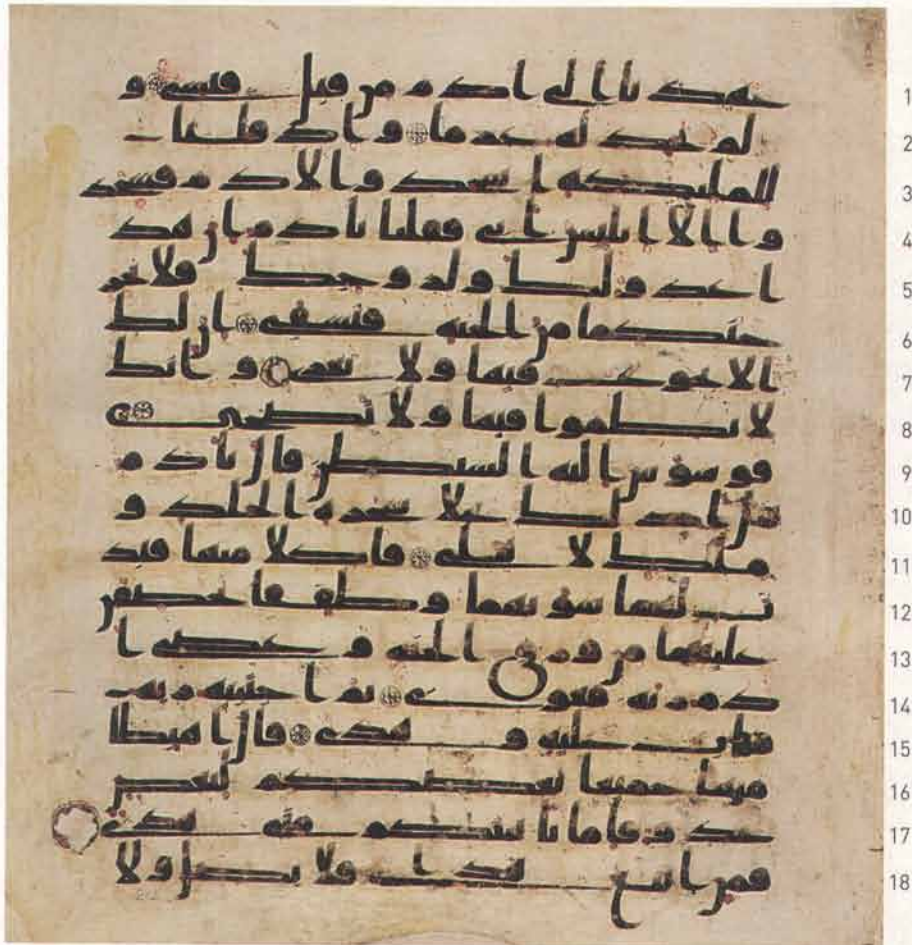 عهدنا الى ادم من قبل فنسى و 1
لم نجد له عزما واذ قلنا 2
للملئكة اسجدوا لادم فسجد 3
وا الا ابليس ابى فقلنا يادم ان هذ 4
ا عدو لك ولزوجك فلا يخر 5
جنكما من الجنة فتشقى ان لك 6
الا تجوع فيها ولا تعرى وانك 7
لا تظموا فيها ولا تضحى 8
فوسوس اليه الشيطن قال يادم 9
هل ادلك على شجرة الخلد و 10
ملك لا يبلى فاكلا منها فبد 11
ت لهما سوتهما وطفقا يخصفن 12
عليهما من ورق الجنة وعصى ا 13
دم ربه فغوى ثم اجتبيه ربه 14
فتاب عليه وهدى قال اهبطا 15
منها جميعا بعضكم لبعض 16
عدو فاما ياتينكم منى هدى 17
فمن اتبع هداى فلا يضل ولا 18